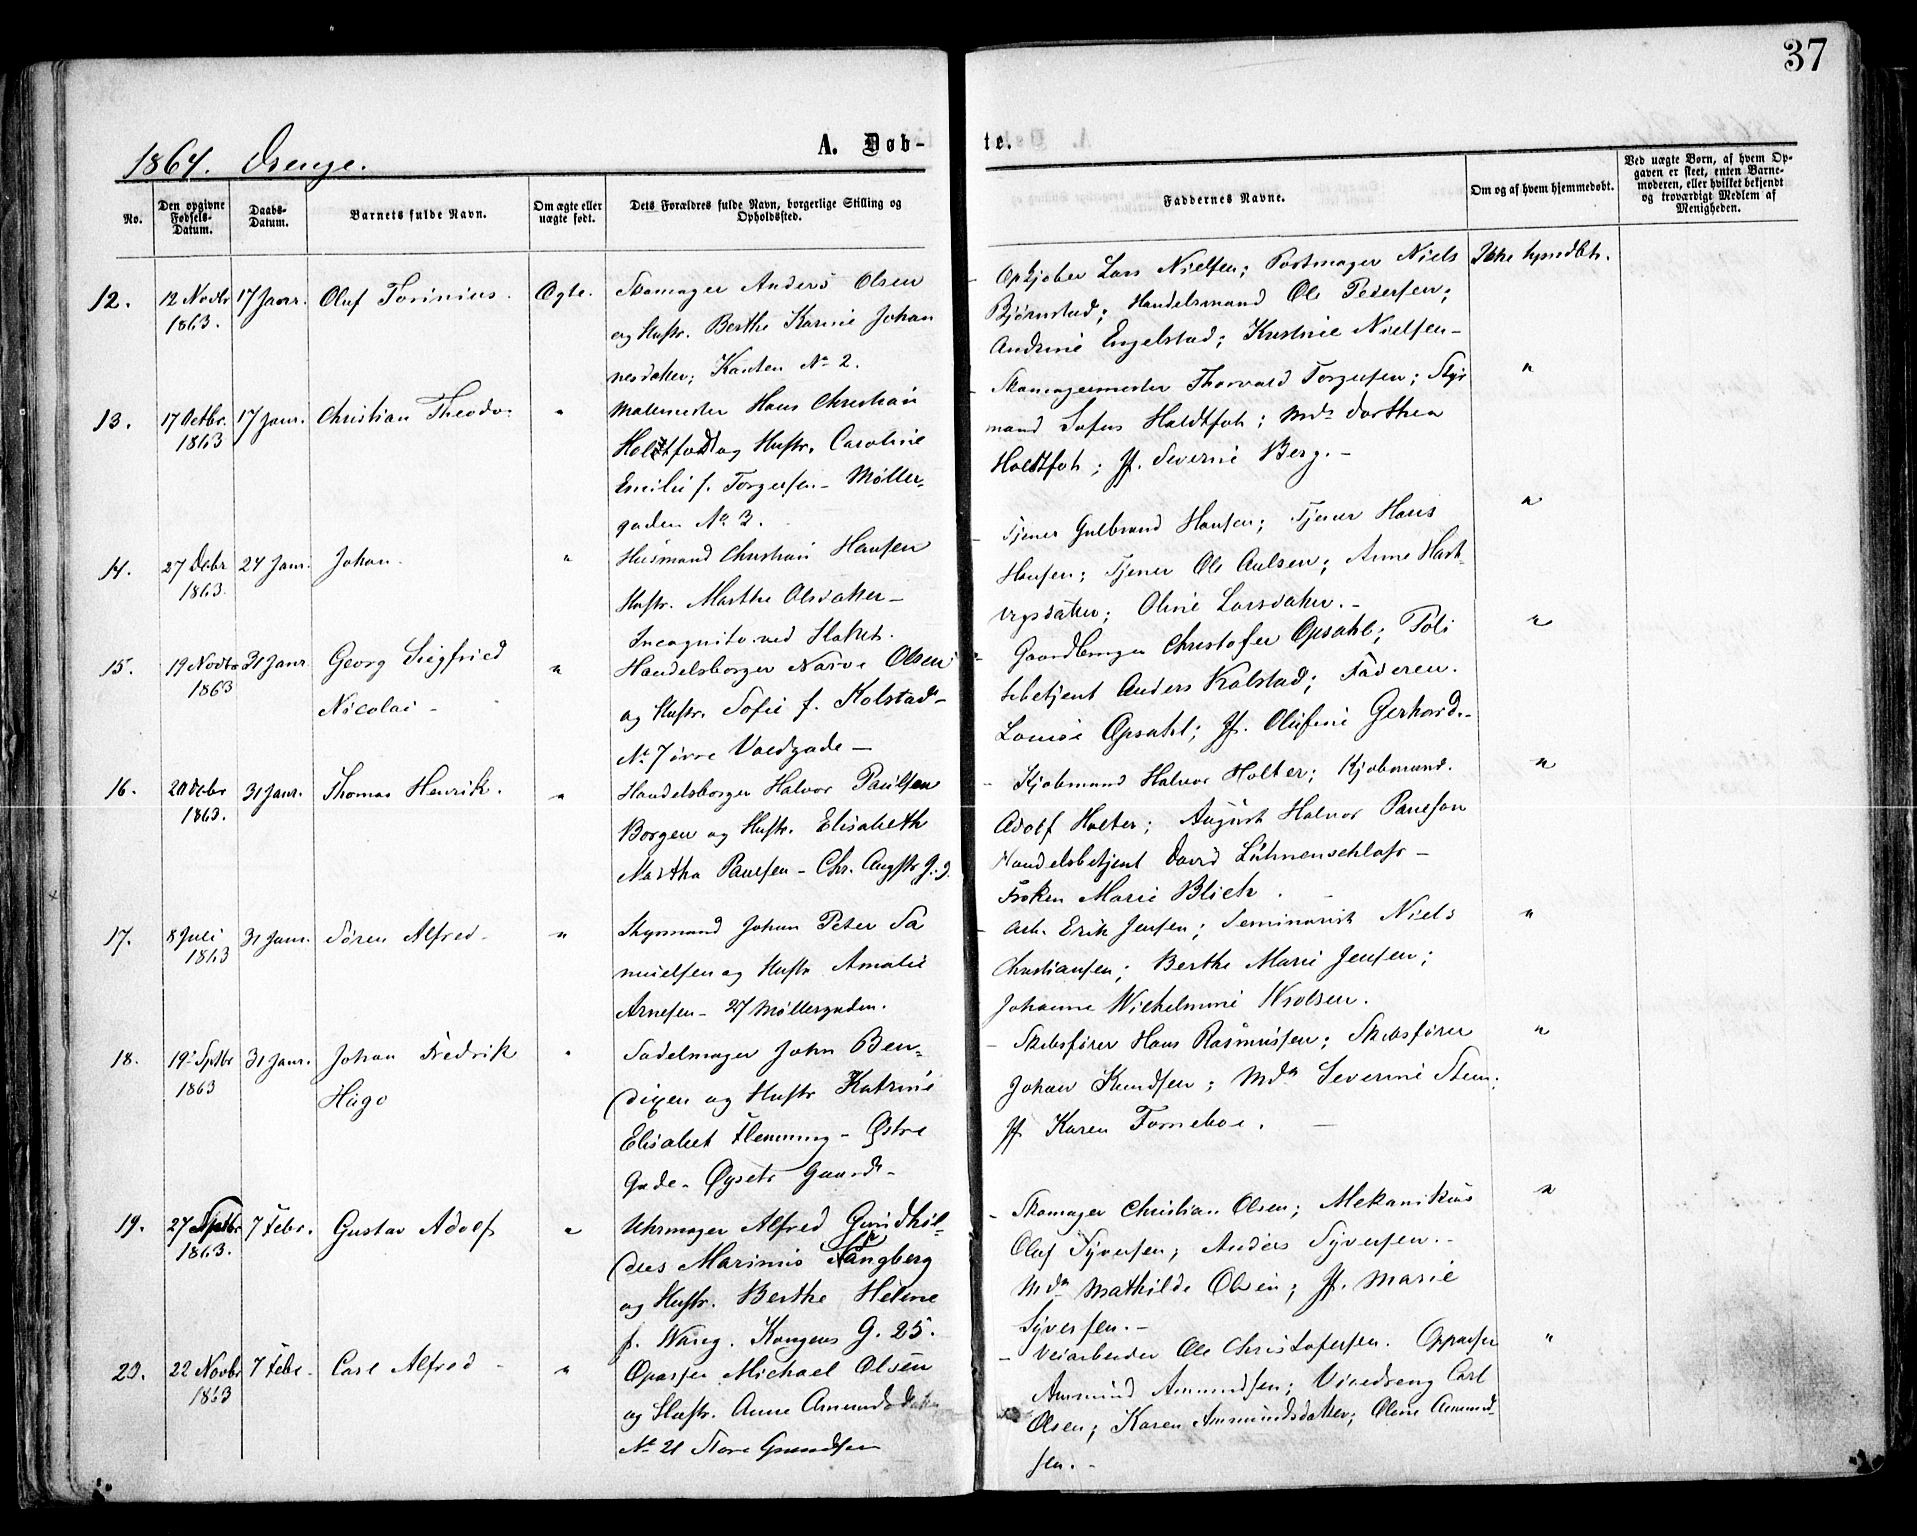 37
1864. Drenge.
A. Døb-
te.
No.
Den opgivne Fødsels-Datum.
Daabs-Datum.
Barnets fulde Navn.
Om ægte eller uægte født.
Dets Forældres fulde Navn, borgerlige Stilling og Opholdssted.
Faddernes Navne.
Om og af hvem hjemmedøbt.
Ved uægte Børn, af hvem Op-
gaven er skeet, enten Barne-
moderen, eller hvilket bekjendt
og troværdigt Medlem af
Menigheden.
12. 12 Novbr 1863. 17 Janr. Oluf Torinius. Ægte.
Skomager Anders Olsen
og Hustr. Berthe Karine Johan
nesdatter; Kanten No 2.
Opkjøber Lars Nielsen; Postmager Niels
Bjørnstad; Handelsmand Ole Pedersen;
Andrine Engelstad; Kristine Nielsen-
Ikke hjmdbt.
13. 17 Octbr. 1863 17 Janr. Christian Theodo- "
Malemester Hans Christian
Holtfodt og Hustr. Caroline
Emilie f. Torgersen- Møller-
gaden No 3.
Skomagermester Thorvald Torgersen; Styr
mand Sofus Holdtfoh; Mdm Dorthea
Holdtfoh; Jf. Severine Berg.-
"
14. 27 Debr 1863. 24 Janr. Johan. "
Husmand Christian Hansen
Hustr. Marthe Olsdatter-
Incognito ved Slottet.
Tjener Gulbrand Hansen; Tjener Hans
Hansen; Tjener Ole Aulsen; Anne Hart-
vigsdatter; Oline Larsdatter.-
"
15. 19 Novbr 1863 31 Janr Georg Siegfried
Nicolai- "
Handelsborger Narve Olsen
og Hustr. Sofie f. Kolstad-
No 7 øvre Voldgade-
Gaardbruger Christofer Opsahl; Poli
tibetjent Anders Kolstad; Faderen.
Lovise Opsahl; Jf. Olufine Gerhard.-
"
16. 20 Debr 1863. 31 Janr. Thomas Henrik. "
Handelsborger Halvor Paulsen
Borgen og Hustr. Elisabeth
Martha Paulsen- Chr. Augstr G. 9.
Kjøbmand Halvor Holter; Kjøbmand.
Adolf Holter; August Halvor Paulson
Handelsbetjent David Lühnenschloss-
Frøken Marie Blich.
"
17. 8 Juli 1863 31 Janr. Søren Alfred- "
Styrmand Johan Peter Sa
muelsen og Hustr Amalie
Arnesen- 27 Møllergaden.
Arb. Erik Jensen; Seminarist Niels
Christiansen; Berthe Marie Jensen;
Johanne Wilhelmine Nrolsen.
"
18. 19 Septbr 1863 31 Janr. Johan Fredrik
Hugo "
Sadelmager John Ben-
dixen og Hustr Katrine
Elisabet Flemming- Østre
Gade- Øysets Gaard-
Skibsfører Hans Rasmussen; Skibsfører
Johan Knudsen; Mdm Severine Steen.
Jf Karen Torneboe.
"
19. 27 Septbr 1863. 7 Febr. Gustav Adolf "
Uhrmager Alfred Gundhil-
des Marinius Langberg
og Hustr. Berthe Helene
f. Wang. Kongens G. 25.
Skomager Christian Olsen; Mekanikus
Oluf Syversen; Anders Syversen.-
Mdm Mathilde Olsen; Jf. Marie
Syversen.-
"
20. 22 Novbr 1863 7 Febr. Carl Alfred- "
Opasser Michael Olsen
og Hustr. Anne Amundsdatter
No 21 Store Grændsen
Veiarbeider Ole Christofersen. Oppasser
Ammund Ammundsen; Viredreng Carl
Olsen; Karen Ammundsdatter; Oline Ammund-
sen.-
"